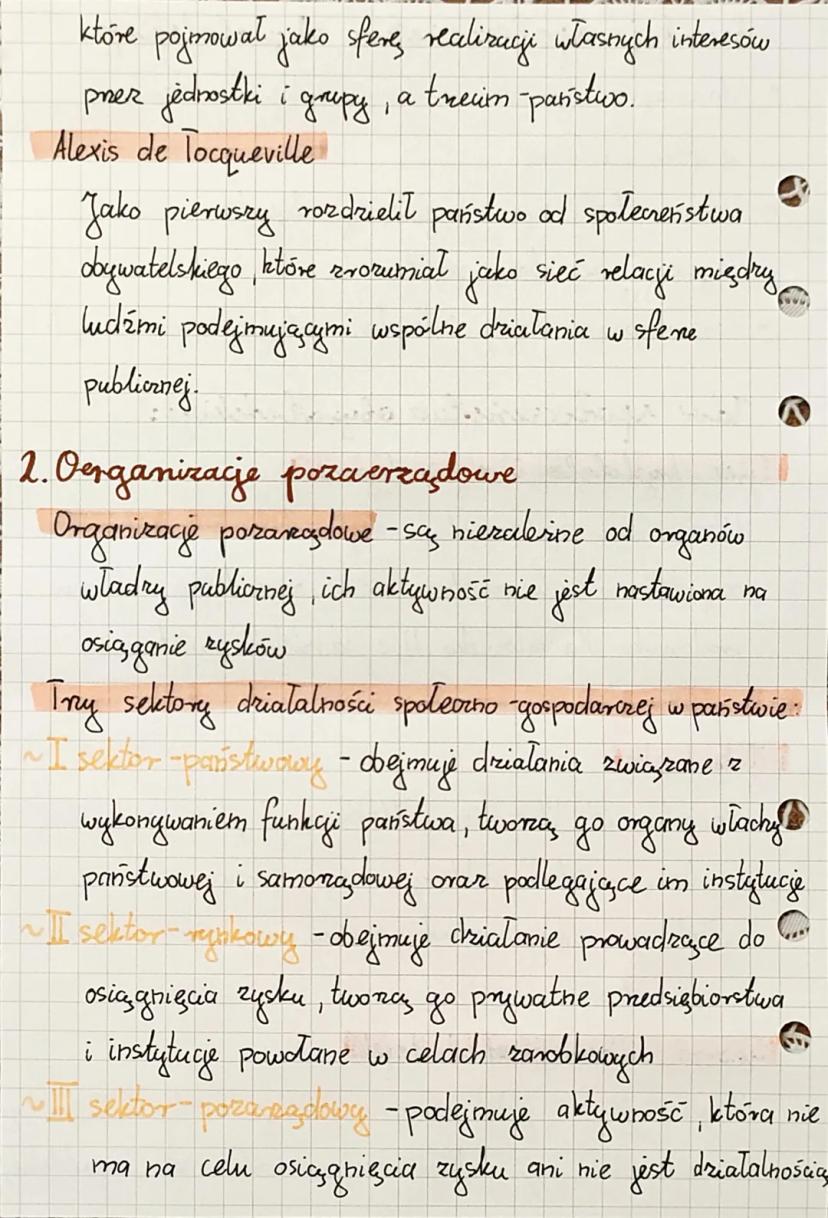 które pojmował jako sferę realizacji własnych interesów
przez jednostki i grupy, a trzecim - państwo.
Alexis de Tocqueville
Jako pierwszy rozdzielił państwo od społeczeństwa
obywatelskiego, które zrozumiał jako sieć relacji między
ludźmi podejmującymi wspólne działania w sferze
publicznej.
2. Organizacje pozarządowe
Organizacje pozarządowe - są niezależne od organów
władzy publicznej, ich aktywność nie jest nastawiona na
osiąganie zysków
Trzy sektory działalności społeczno-gospodarczej w państwie:
~ I sektor - państwowy - obejmuje działania związane z
wykonywaniem funkcji państwa, tworzą go organy władzy
państwowej i samorządowej oraz podlegające im instytucje
~ II sektor - rynkowy - obejmuje działanie prowadzące do
osiągnięcia zysku, tworzą go prywatne przedsiębiorstwa
i instytucje powołane w celach zarobkowych
~ III sektor - pozarządowy - podejmuje aktywność, która nie
ma na celu osiągnięcia zysku ani nie jest działalnością